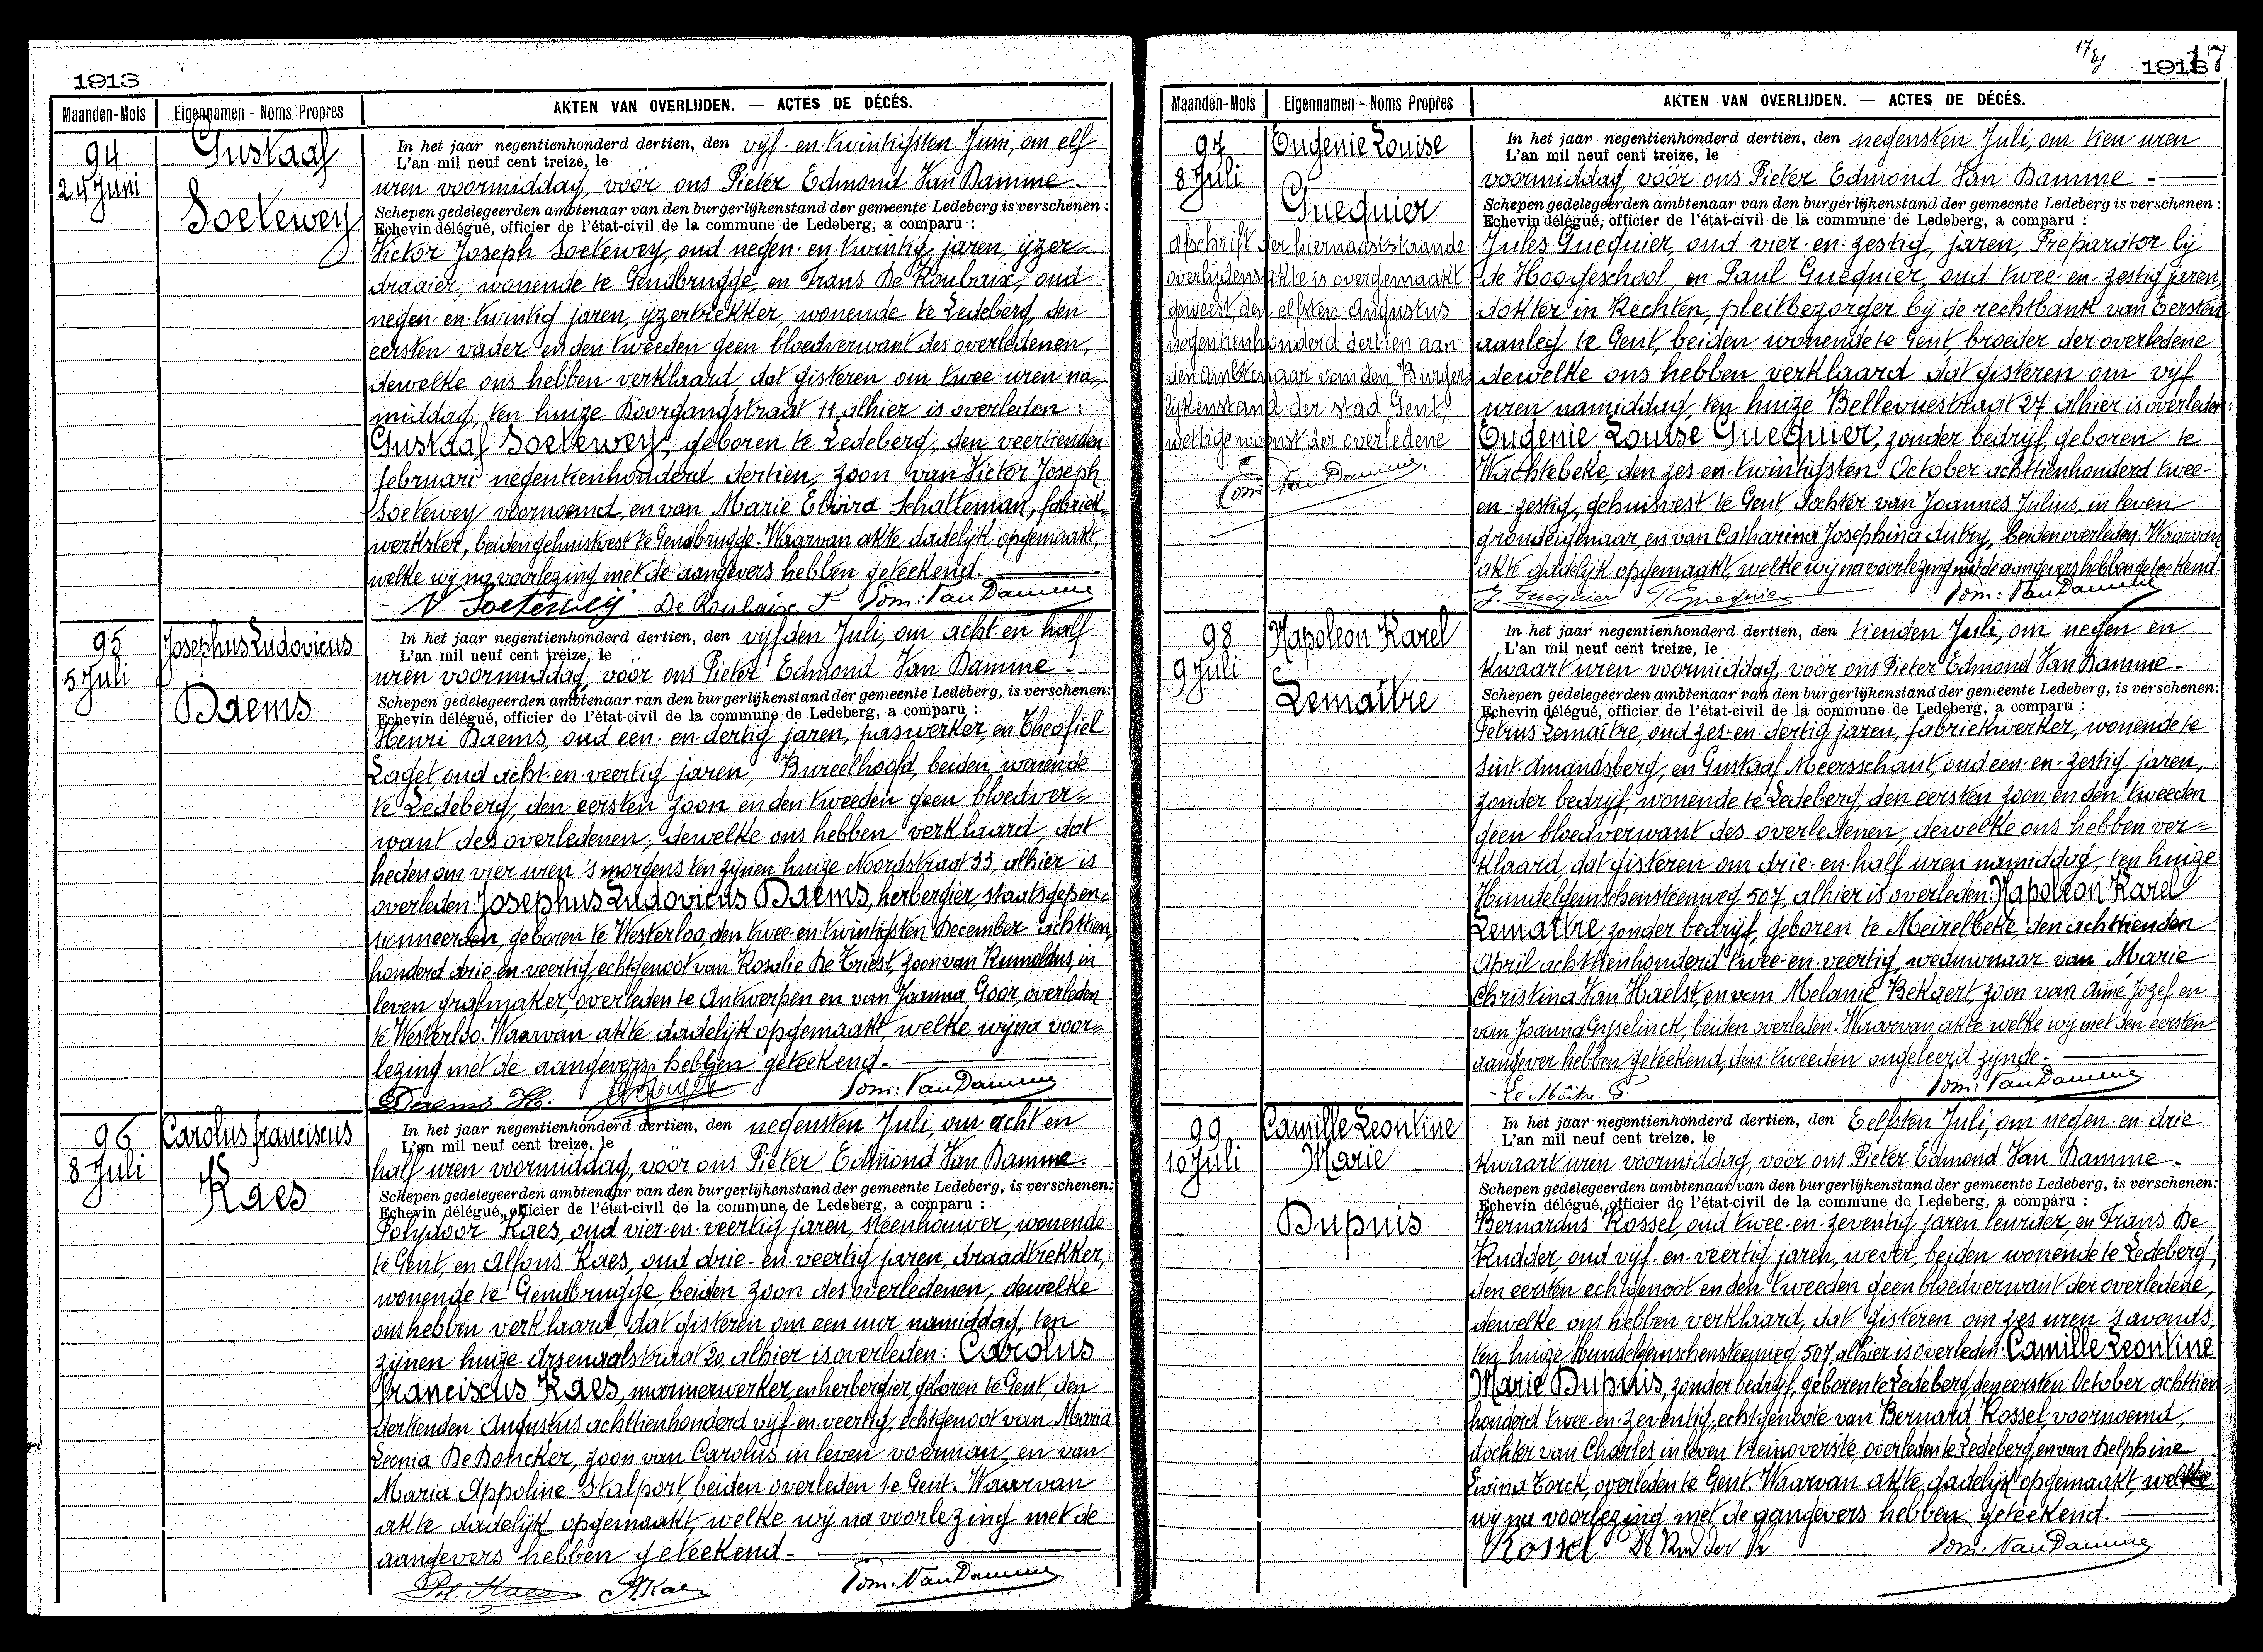 1913
Maanden-Mois
Eigennamen - Noms Propres
AKTEN VAN OVERLIJDEN. — ACTES DE DÉCÉS.
94
24 Juni
Gustaaf
Soetewey
In het jaar negentienhonderd dertien, den vijf-en-twintigsten Juni, om elf
L'an mil neuf cent treize, le
uren voormiddag, vóór ons Pieter Edmond Van Damme.
Schepen gedelegeerden ambtenaar van den burgerlijkenstand der gemeente Ledeberg is verschenen :
Echevin délégué, officier de l'état-civil de la commune de Ledeberg, a comparu :
Victor Joseph Soetewey, oud negen-en-twintig jaren, ijzer-
draaier, wonende te Gendbrugge, en Frans De Roubaix, oud
negen-en-twintig jaren, ijzertrekker, wonende te Ledeberg, den
eersten vader en den tweeden geen bloedverwant des overledenen,
dewelke ons hebben verklaard, dat gisteren om twee uren na-
middag, ten huize Doorgangstraat 11 alhier is overleden :
Gustaaf Soetewey, geboren te Ledeberg, den veertienden
februari negentienhonderd dertien, zoon van Victor Joseph
Soetewey voornoemd, en van Marie Elvira Schatteman, fabriek-
werkster, beiden gehuisvest te Gendbrugge. Waarvan akte dadelijk opgemaakt,
welke wij na voorlezing met de aangevers hebben geteekend.
V Soetewey De Roubaix F Dom: Van Damme
95
5 Juli
Josephus Ludovicus
Daems
In het jaar negentienhonderd dertien, den vijfden Juli, om acht en half
L'an mil neuf cent treize, le
uren voormiddag, vóór ons Pieter Edmond Van Damme -
Schepen gedelegeerden ambtenaar van den burgerlijkenstand der gemeente Ledeberg, is verschenen:
Echevin délégué, officier de l'état-civil de la commune de Ledeberg, a comparu :
Henri Daems, oud een-en-dertig jaren, paswerker, en Theofiel
Laget, oud acht-en-veertig jaren, Bureelhoofd, beiden wonende
te Ledeberg, den eersten zoon en den tweeden geen bloedver-
want des overledenen; dewelke ons hebben verklaard, dat
heden om vier uren 's morgens ten zijnen huize Noordstraat 33, alhier is
overleden: Josephus Ludovicus Daems, herbergier, staatsgepen-
sionneerden, geboren te Westerloo, den twee-en-twintigsten December achttien
honderd drie-en-veertig, echtgenoot van Rosalie De Triest, zoon van Rumoldus, in
leven grafmaker, overleden te Antwerpen en van Joanna Goor, overleden
te Westerloo. Waarvan akte dadelijk opgemaakt, welke wij na voor-
lezing met de aangevers hebben geteekend. -
Daems H. Dom: Van Damme
96
8 Juli
Carolus franciscus
Kaes
In het jaar negentienhonderd dertien, den negensten Juli, om acht en
L'an mil neuf cent treize, le
half uren voormiddag, vóór ons Pieter Edmond Van Damme.
Schepen gedelegeerden ambtenaar van den burgerlijkenstand der gemeente Ledeberg, is verschenen:
Echevin délégué, officier de l'état-civil de la commune de Ledeberg, a comparu :
Polydoor Kaes, oud vier-en-veertig jaren, steenhouwer, wonende
te Gent, en Alfons Kaes, oud drie-en-veertig jaren, draadtrekker,
wonende te Gendbrugge, beiden zoon des overledenen, dewelke
ons hebben verklaard, dat gisteren om een uur namiddag, ten
zijnen huize Arsenaalstraat 20, alhier is overleden: Carolus
franciscus Kaes, marmerwerker, en herbergier, geboren te Gent, den
dertienden Augustus achttienhonderd vijf-en-veertig, echtgenoot van Maria
Leonia De Doncker, zoon van Carolus in leven voerman, en van
Maria Appoline Stalport, beiden overleden te Gent. Waarvan
akte dadelijk opgemaakt, welke wij na voorlezing met de
aangevers hebben geteekend. -
Pol. Kaes A. Kaes Dom: Van Damme
17
1913
Maanden-Mois
Eigennamen - Noms Propres
AKTEN VAN OVERLIJDEN. — ACTES DE DÉCÉS.
97
8 Juli
Eugenie Louise
Guequier
Afschrift der hiernaaststaande
overlijdensakte is overgemaakt
geweest den elfsten Augustus
negentienhonderd dertien aan
den ambtenaar van den Burger-
lijkenstand der stad Gent,
wettige woonst der overledene
Dom: Van Damme.
In het jaar negentienhonderd dertien, den negensten Juli, om tien uren
L'an mil neuf cent treize, le
voormiddag, vóór ons Pieter Edmond Van Damme -
Schepen gedelegeerden ambtenaar van den burgerlijkenstand der gemeente Ledeberg is verschenen :
Echevin délégué, officier de l'état-civil de la commune de Ledeberg, a comparu :
Jules Guequier, oud vier-en-zestig, jaren, Preparator bij
de Hoogeschool, en Paul Guequier, oud twee-en-zestig jaren,
dokter in Rechten, pleitbezorger bij de rechtbank van Eersten
aanleg te Gent, beiden wonende te Gent, broeder der overledene
dewelke ons hebben verklaard dat gisteren om vijf
uren namiddag, ten huize Bellevuestraat 27 alhier is overleden:
Eugenie Louise Guequier, zonder bedrijf, geboren te
Wachtebeke, den zes-en-twintigsten October achttienhonderd twee-
en-zestig, gehuisvest te Gent, dochter van Joannes Julius, in leven
grondeigenaar, en van Catharina Josephina Autry, beiden overleden. Waarvan
akte dadelijk opgemaakt, welke wij na voorlezing met de aangevers hebben geteekend.
J. Guequier P. Guequier Dom: Van Damme
98
9 Juli
Napoleon Karel
Lemaître
In het jaar negentienhonderd dertien, den tienden Juli, om negen en
L'an mil neuf cent treize, le
kwaart uren voormiddag, vóór ons Pieter Edmond Van Damme -
Schepen gedelegeerden ambtenaar van den burgerlijkenstand der gemeente Ledeberg, is verschenen:
Echevin délégué, officier de l'état-civil de la commune de Ledeberg, a comparu :
Petrus Lemaître, oud zes-en-dertig jaren, fabriekwerker, wonende te
Sint-Amandsberg, en Gustaaf Meersschaut, oud een-en-zestig jaren,
zonder bedrijf, wonende te Ledeberg, den eersten zoon, en den tweeden
geen bloedverwant des overledenen, dewelke ons hebben ver-
klaard, dat gisteren om drie-en-half uren namiddag, ten huize
Hundelgemschensteenweg 507, alhier is overleden: Napoleon Karel
Lemaître, zonder bedrijf, geboren te Meirelbeke, den achttienden
April achttienhonderd twee-en-veertig, weduwnaar van Marie
Christina Van Haelst, en van Melanie Bekaert, zoon van Aimé Jozef en
van Joanna Gyselinck, beiden overleden. Waarvan akte welke wij met den eersten
aangever hebben geteekend, den tweeden ongeleerd zijnde. -
Le Maître P. Dom: Van Damme
99
10 Juli
Camille Leontine
Marie
Dupuis
In het jaar negentienhonderd dertien, den Eelfsten Juli, om negen-en-drie
L'an mil neuf cent treize, le
kwaart uren voormiddag, vóór ons Pieter Edmond Van Damme -
Schepen gedelegeerden ambtenaar van den burgerlijkenstand der gemeente Ledeberg, is verschenen:
Echevin délégué, officier de l'état-civil de la commune de Ledeberg, a comparu :
Bernardus Rossel, oud twee-en-zeventig jaren, leurder, en Frans De
Rudder, oud vijf-en-veertig jaren, wever, beiden wonende te Ledeberg,
den eersten echtgenoot en den tweeden geen bloedverwant der overledene,
dewelke ons hebben verklaard, dat gisteren om zes uren 's avonds,
ten huize Hundelgemschensteenweg 507, alhier is overleden: Camille Leontine
Marie Dupuis, zonder bedrijf, geboren te Ledeberg, den eersten October achttien-
honderd twee-en-zeventig, echtgenoote van Bernard Rossel, voornoemd,
dochter van Charles in leven treinoverste, overleden te Ledeberg, en van Delphine
Livina Torck, overleden te Gent. Waarvan akte dadelijk opgemaakt, welke
wij na voorlezing met de aangevers hebben geteekend. -
Rossel De Rudder Fr Dom: Van Damme